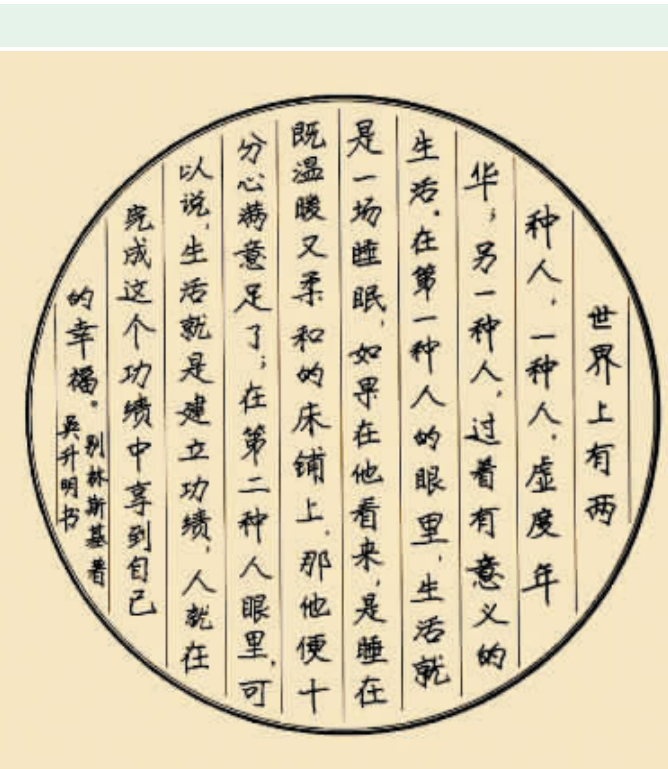 世界上有两
种人，一种人，虚度年
华；另一种人，过着有意义的
生活。在第一种人的眼里，生活就
是一场睡眠，如果在他看来，是睡在
既温暖又柔和的床铺上，那他便十
分心满意足了；在第二种人眼里，可
以说，生活就是建立功绩，人就在
完成这个功绩中享到自己
的幸福。
别林斯基著
吴升明书